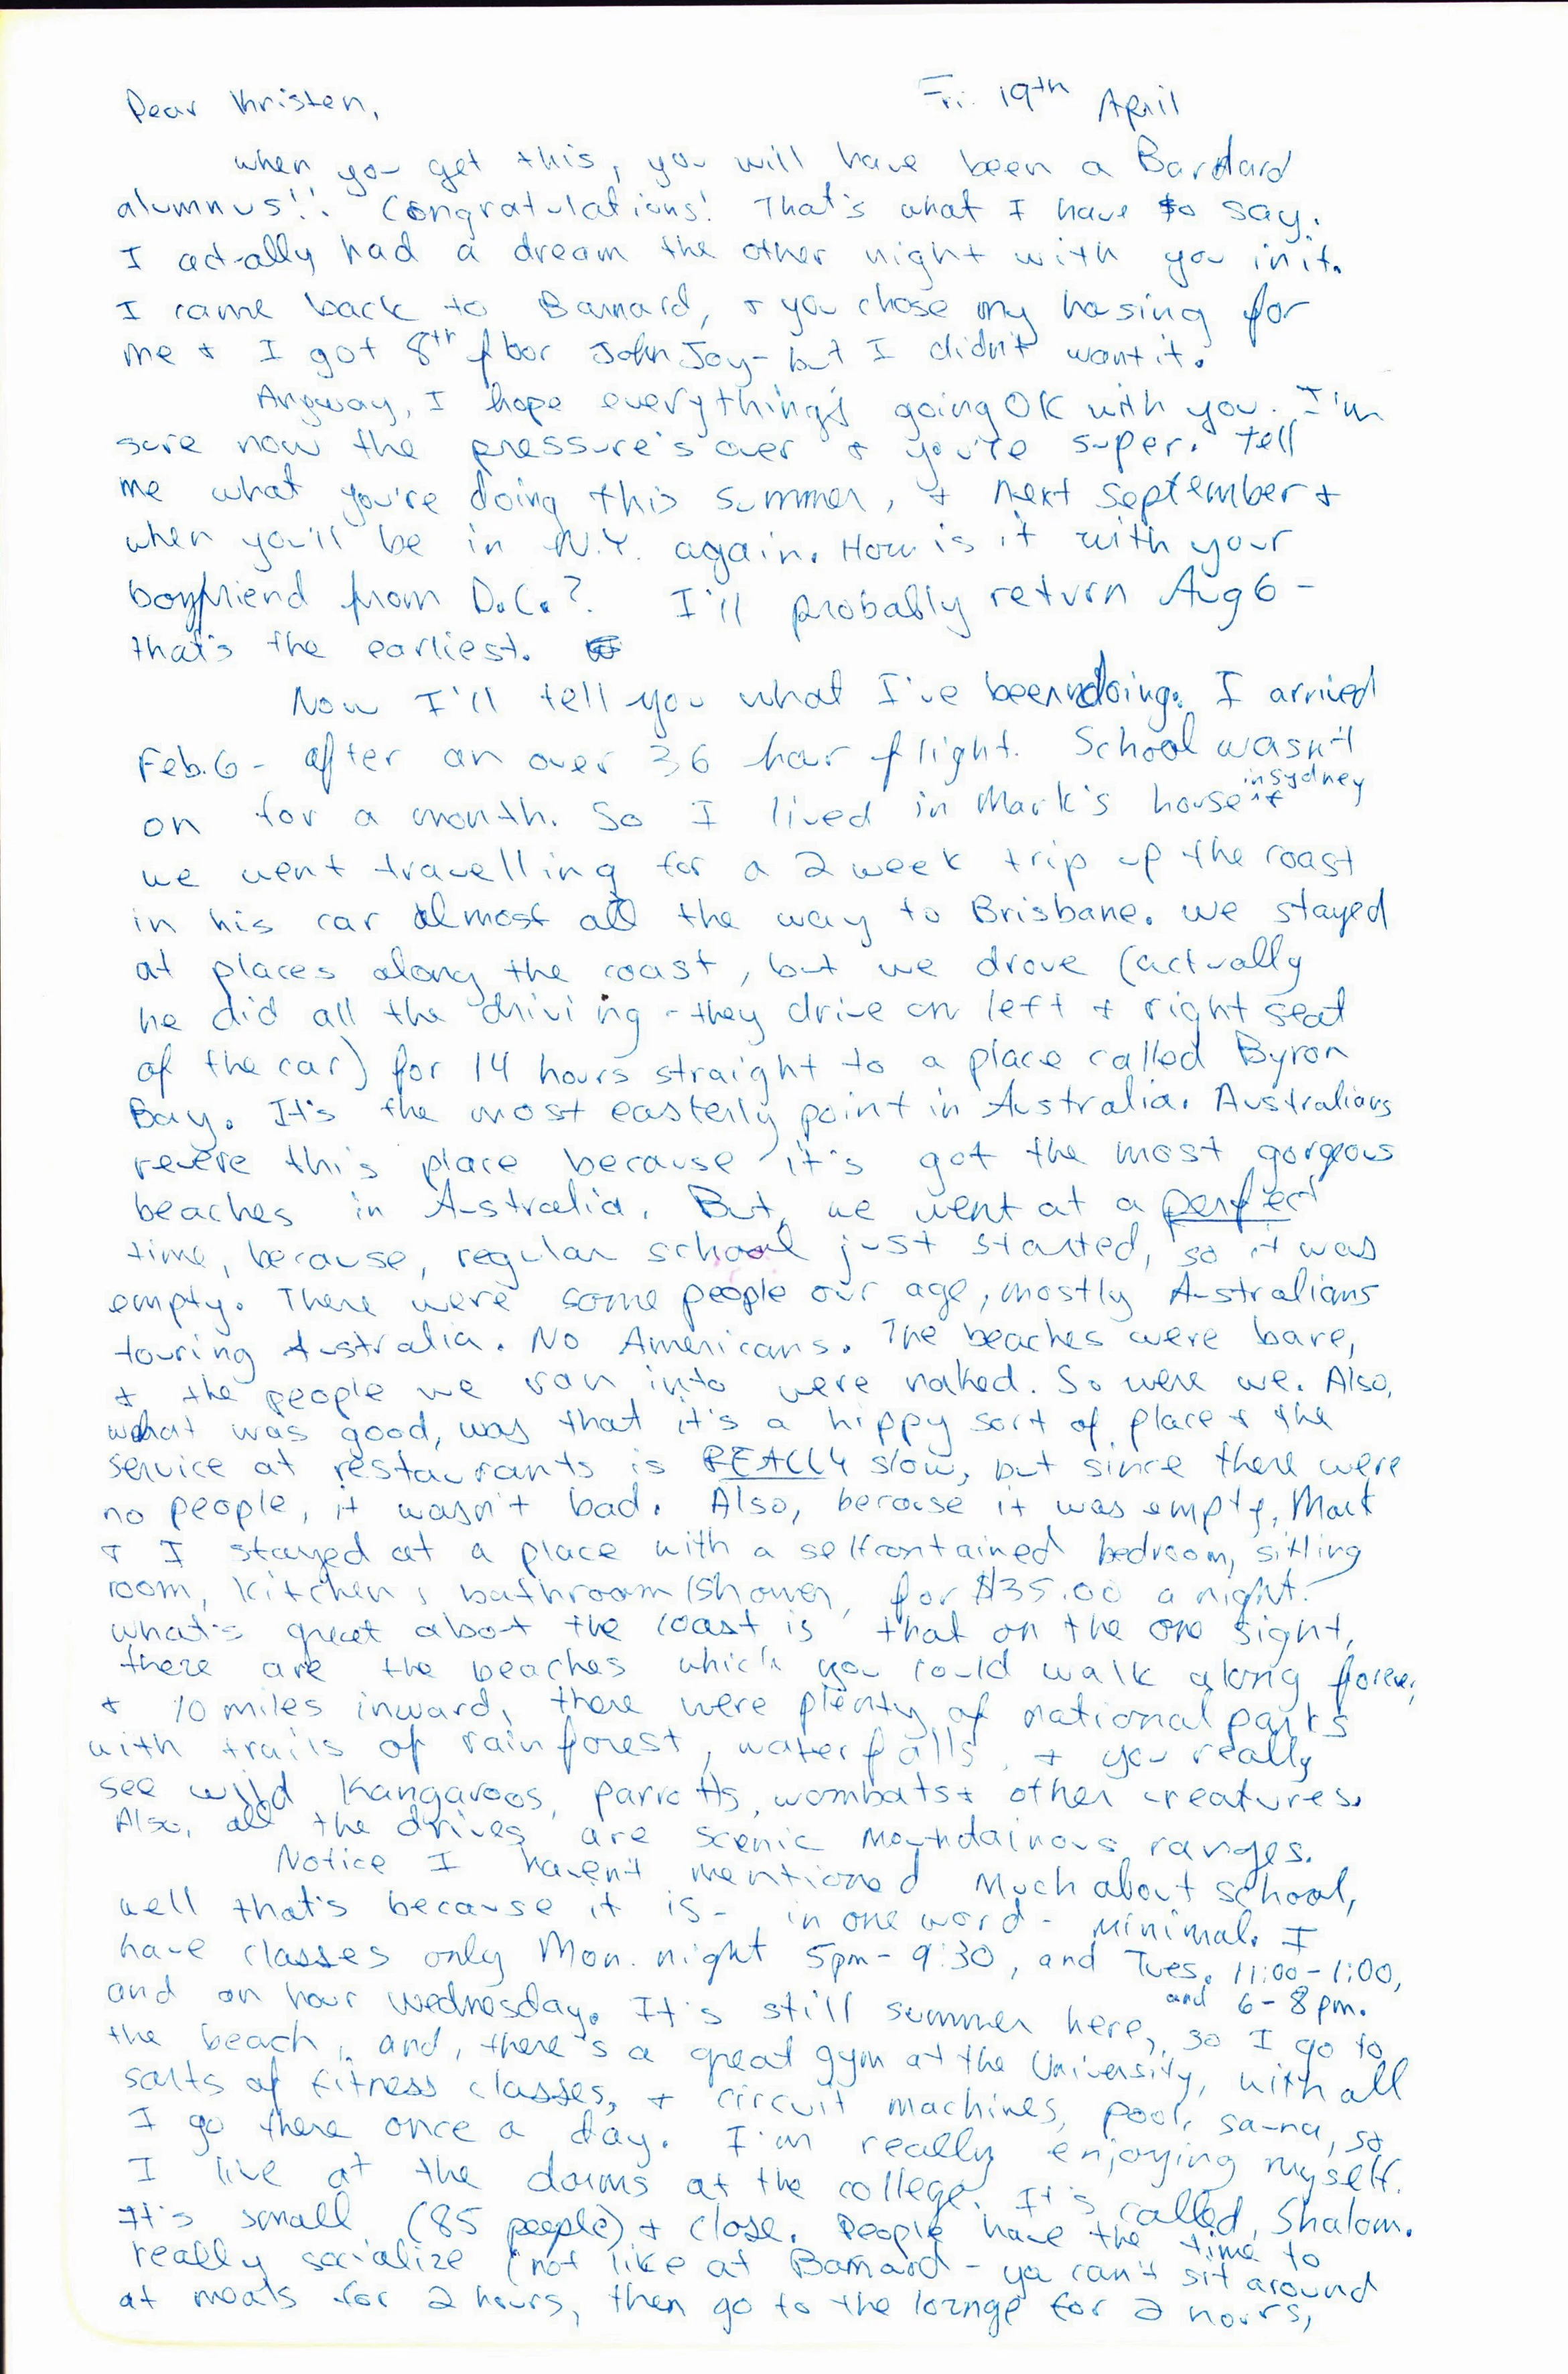 Dear Kristen,
Fri. 19th April
when you get this, you will have been a Barnard
alumnus!! Congratulations! That's what I have to say.
I actually had a dream the other night with you in it.
I came back to Barnard, + you chose my housing for
me + I got 8th floor John Jay - but I didn't want it.
Anyway, I hope everything's going OK with you. I'm
sure now the pressure's over + you're super. Tell
me what you're doing this summer, + next September +
when you'll be in N.Y. again. How is it with your
boyfriend from D.C.? I'll probably return Aug 6 -
that's the earliest.
Now I'll tell you what I've been doing. I arrived
Feb. 6 - after an over 36 hour flight. School wasn't
on for a month. So I lived in Mark's house in Sydney +
we went travelling for a 2 week trip up the coast
in his car almost all the way to Brisbane. We stayed
at places along the coast, but we drove (actually
he did all the driving - they drive on left + right seat
of the car) for 14 hours straight to a place called Byron
Bay. It's the most easterly point in Australia. Australians
revere this place because it's got the most gorgeous
beaches in Australia. But, we went at a perfect
time, because, regular school just started, so it was
empty. There were some people our age, mostly Australians
touring Australia. No Americans. The beaches were bare,
+ the people we ran into were naked. So were we. Also,
what was good, was that it's a hippy sort of place + the
service at restaurants is REALLY slow, but since there were
no people, it wasn't bad. Also, because it was empty, Mark
+ I stayed at a place with a selfcontained bedroom, sitting
room, kitchen, bathroom/shower, for $35.00 a night!
what's great about the coast is that on the one sight,
there are the beaches which you could walk along forever,
+ 10 miles inward, there were plenty of national parks
with trails of rainforest, waterfalls, + you really
see wild Kangaroos, parrotts, wombats + other creatures.
Also, all the drives are scenic mountainous ranges.
Notice I haven't mentioned much about school,
well that's because it is - in one word - minimal. I
have classes only Mon. night 5pm - 9:30, and Tues. 11:00 - 1:00,
and 6 - 8 pm.
and on hour Wednesday. It's still summer here, so I go to
the beach, and, there's a great gym at the University, with all
sorts of fitness classes, + circuit machines, pool, sauna, so
I go there once a day. I'm really enjoying myself.
I live at the dorms at the college. It's called, Shalom.
It's small (85 people) + close. People have the time to
really socialize (not like at Barnard - ya can't sit around
at meals for 2 hours, then go to the lounge for 2 hours,